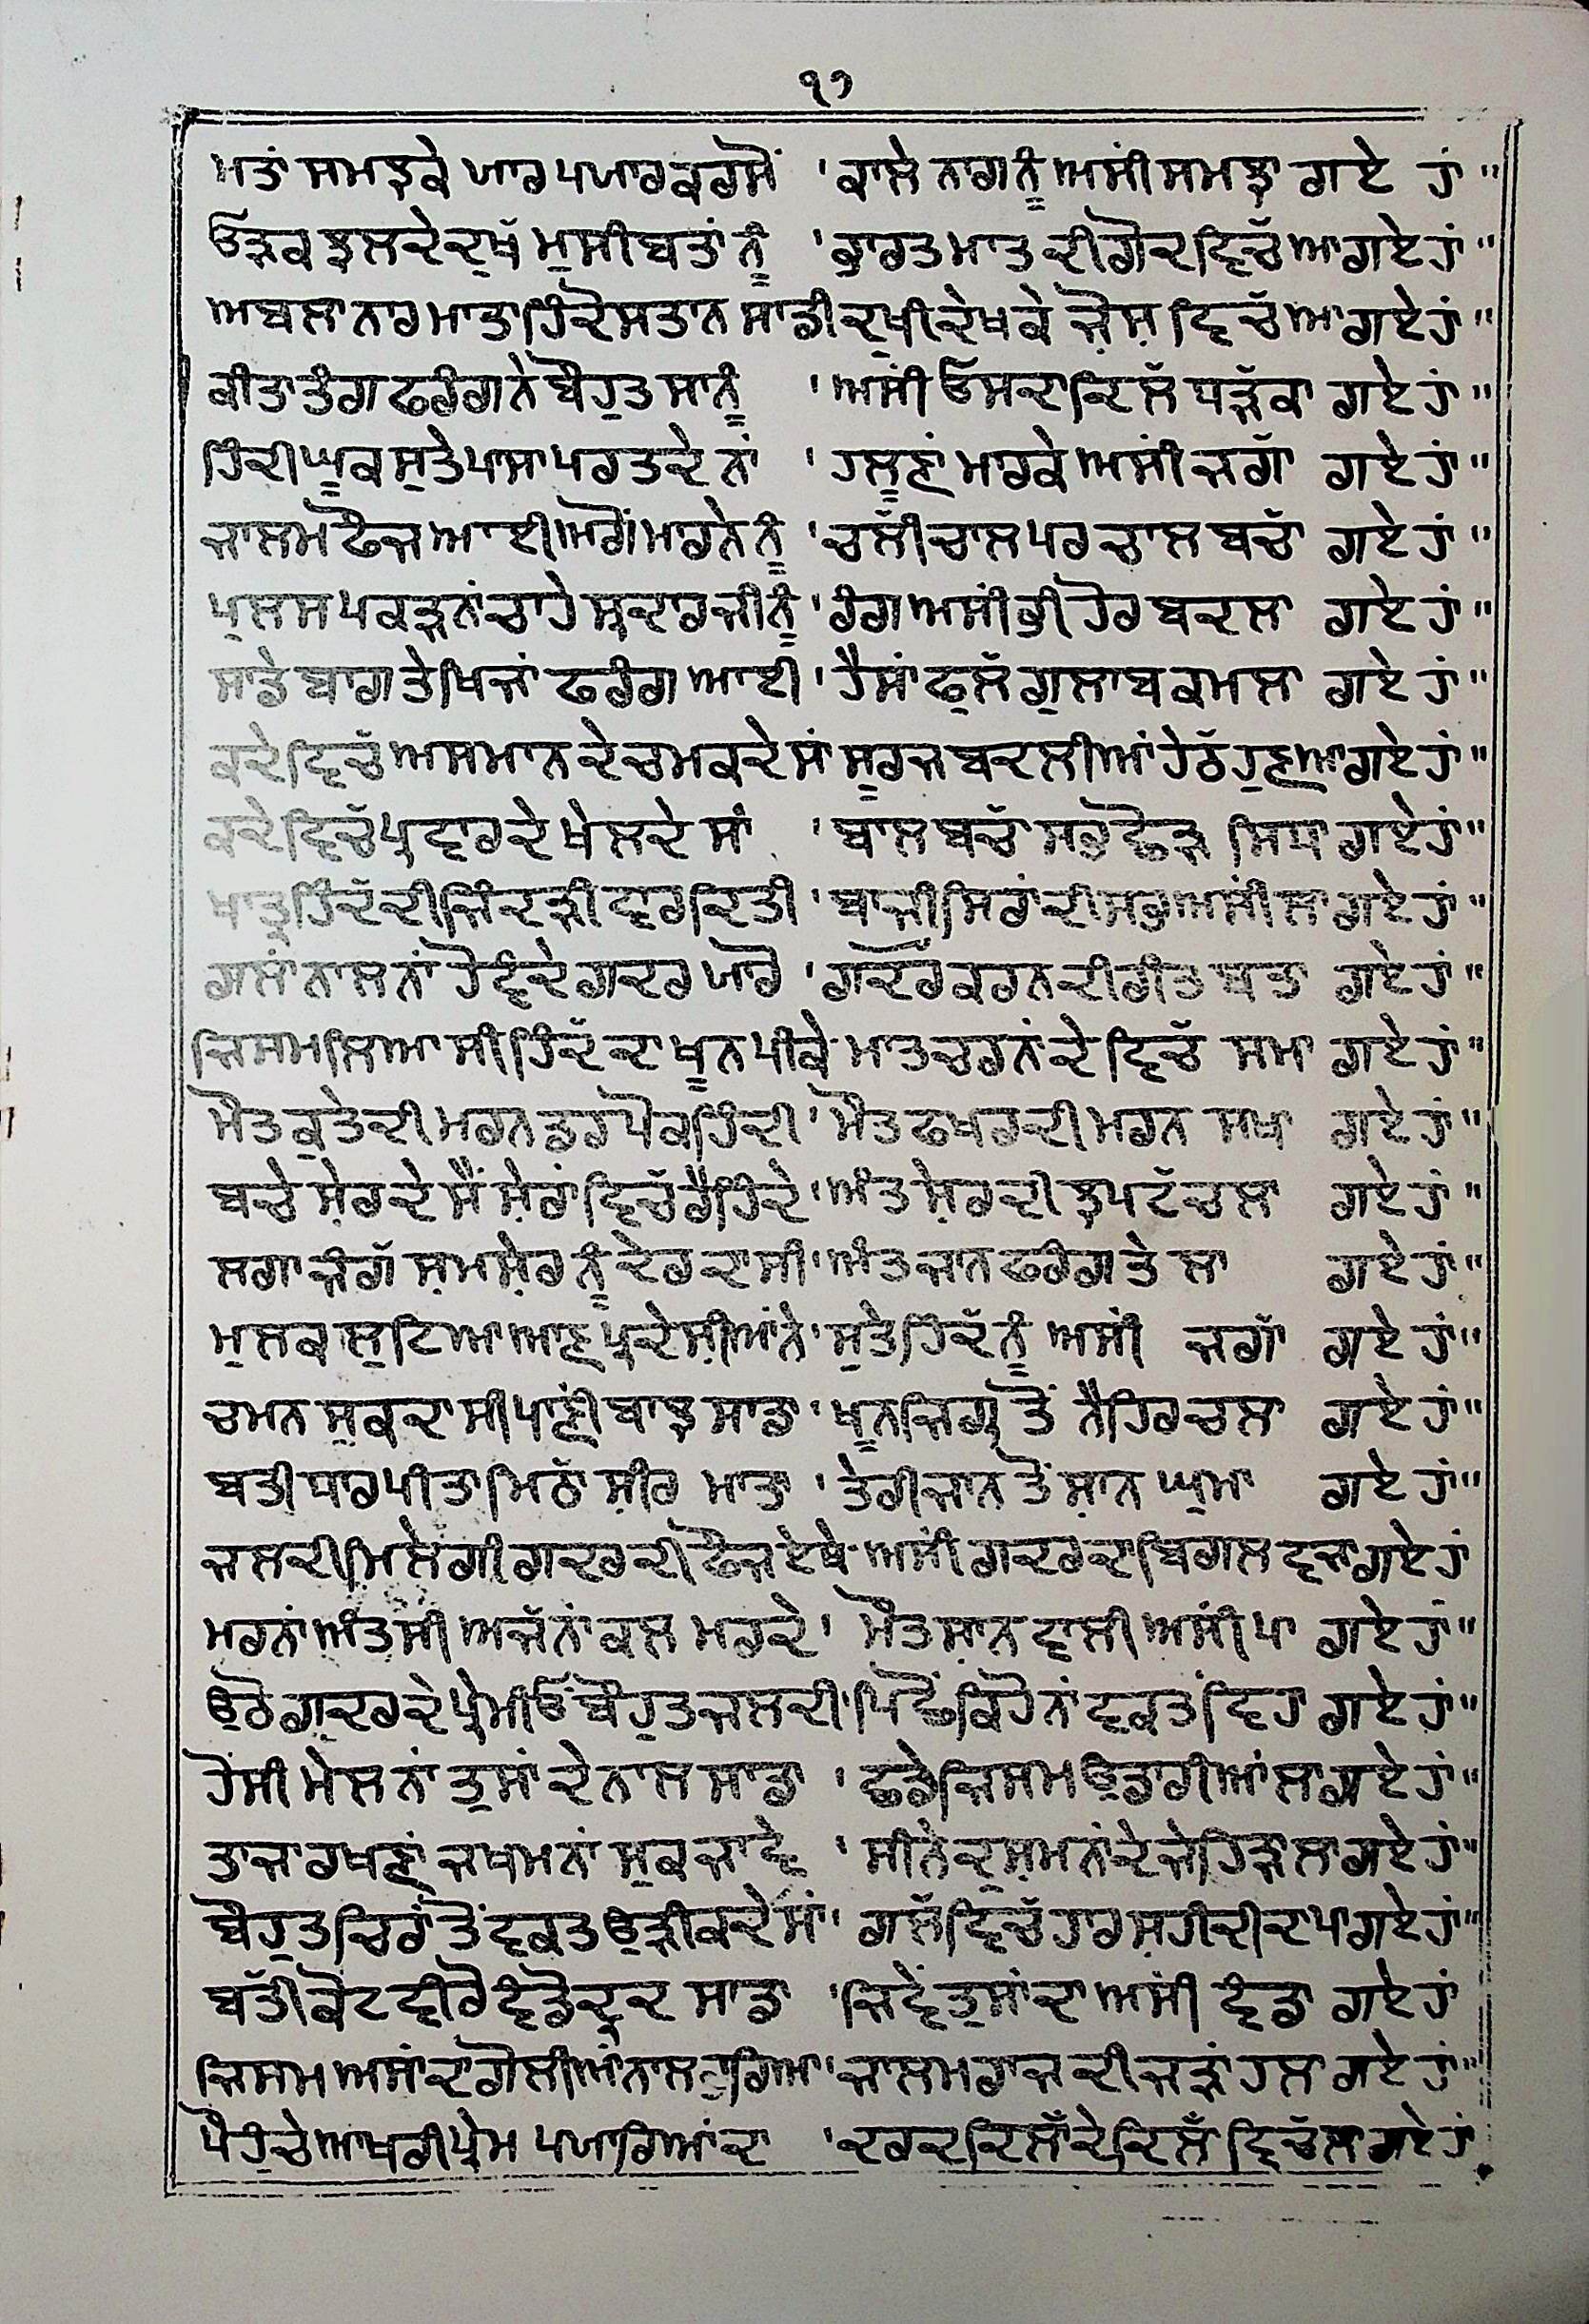 ੧੭
ਮਤਾਂ ਸਮਝਕੇ ਯਾਰ ਪਯਾਰ ਕਰਸੋਂ ' ਕਾਲੇ ਨਾਗ ਨੂੰ ਅਸੀਂ ਸਮਝਾ ਗਏ ਹਾਂ "
ਓੜਕ ਝਲਦੇ ਦੁਖੱ ਮੁਸੀਬਤਾਂ ਨੂੰ ' ਭਾਰਤ ਮਾਤ ਦੀ ਗੋਦ ਵਿਚੱ ਆ ਗਏ ਹਾਂ "
ਅਬਲਾ ਨਾਰ ਮਾਤਾ ਹਿੰਦੋਸਤਾਨ ਸਾਡੀ ਦੁਖੀ ਦੇਖਕੇ ਜੋਸ਼ ਵਿਚੱ ਆ ਗਏ ਹਾਂ "
ਕੀਤਾ ਤੰਗ ਫਰੰਗ ਨੇ ਬੌਹੁਤ ਸਾਨੂੰ ' ਅਸੀਂ ਓਸਦਾ ਦਿਲੱ ਧੜੱਕਾ ਗਏ ਹਾਂ "
ਹਿੰਦੀ ਘੂਕ ਸੁਤੇ ਪਾਸਾ ਪਰਤਦੇ ਨਾਂ ' ਹਲੂਣਾਂ ਮਾਰਕੇ ਅਸੀਂ ਜਗਾੱ ਗਏ ਹਾਂ "
ਜਾਲਮ ਫੌਜ ਆਈ ਅਗੋਂ ਮਾਰਨੇ ਨੂੰ ' ਚਲੱੀ ਚਾਲ ਪਰ ਚਾਲ ਬਚਾੱ ਗਏ ਹਾਂ "
ਪੁਲਸ ਪਕੜਨਾਂ ਚਾਹੇ ਸ੍ਰਦਾਰ ਜੀ ਨੂੰ ' ਰੰਗ ਅਸੀਂ ਭੀ ਹੋਰ ਬਦਲਾ ਗਏ ਹਾਂ "
ਸਾਡੇ ਬਾਗ ਤੇ ਖਿਜਾਂ ਫਰੰਗ ਆਈ ' ਹੈਸਾਂ ਫੁਲੱ ਗੁਲਾਬ ਕਮਲਾ ਗਏ ਹਾਂ "
ਕਦੇ ਵਿਚੱ ਅਸਮਾਨ ਦੇ ਚਮਕਦੇ ਸਾਂ ਸੂਰਜ ਬਦਲੀਆਂ ਹੇਠੱ ਹੁਣ ਆ ਗਏ ਹਾਂ "
ਕਦੇ ਵਿਚੱ ਪ੍ਰਵਾਰ ਦੇ ਖੇਲਦੇ ਸਾਂ ' ਬਾਲ ਬਚਾੱ ਸਭ ਛੋੜ ਸਿਧਾ ਗਏ ਹਾਂ "
ਖਾਤ੍ਰ ਹਿੰਦੱ ਦੀ ਜਿੰਦੜੀ ਵਾਰ ਦਿਤੀ ' ਬਾਜੀ ਸਿਰਾਂ ਦੀ ਸਭ ਅਸੀਂ ਲਾ ਗਏ ਹਾਂ "
ਗਲਾਂ ਨਾਲ ਨਾਂ ਹੋਵੰਦੇ ਗਦਰ ਯਾਰੋ ' ਗਦੱਰ ਕਰਨ ਦੀ ਰੀਤ ਬਤਾ ਗਏ ਹਾਂ "
ਜਿਸਮ ਲਿਆ ਸੀ ਹਿੰਦੱ ਦਾ ਖੂਨ ਪੀਕੇ ਮਾਤ ਚਰਨਾਂ ਦੇ ਵਿਚੱ ਸਮਾ ਗਏ ਹਾਂ "
ਮੌਤ ਕੁਤੇ ਦੀ ਮਰਨ ਡਰਪੋਕ ਹਿੰਦੀ ' ਮੌਤ ਫਖਰ ਦੀ ਮਰਨ ਸਖਾ ਗਏ ਹਾਂ "
ਬਚੇ ਸ਼ੇਰ ਦੇ ਸੈਂ ਸ਼ੇਰਾਂ ਵਿਚੱ ਰੈਹਿੰਦੇ ' ਅੰਤ ਸ਼ੇਰ ਦੀ ਝਪਟੱ ਚਲਾ ਗਏ ਹਾਂ "
ਲਗਾ ਜੰਗੱ ਸ਼ਮਸ਼ੇਰ ਨੂੰ ਦੇਰ ਦਾ ਸੀ ' ਅੰਤ ਜਾਨ ਫਰੰਗ ਤੇ ਲਾ ਗਏ ਹਾਂ "
ਮੁਲਕ ਲੁਟਿਆ ਆਣ ਪ੍ਰਦੇਸ਼ੀਆਂ ਨੇ ' ਸੁਤੇ ਹਿੰਦੱ ਨੂੰ ਅਸੀਂ ਜਗਾੱ ਗਏ ਹਾਂ "
ਚਮਨ ਸੁਕਦਾ ਸੀ ਪਾਣੀਂ ਬਾਝ ਸਾਡਾ ' ਖੂਨ ਜਿਗ੍ਰ ਤੋਂ ਨੈਹਿਰ ਚਲਾ ਗਏ ਹਾਂ "
ਬਤੀ ਧਾਰ ਪੀਤਾ ਮਿਠਾੱ ਸ਼ੀਰ ਮਾਤਾ ' ਤੇਰੀ ਜਾਨ ਤੋਂ ਸ਼ਾਨ ਘੁਮਾ ਗਏ ਹਾਂ "
ਜਲਦੀ ਮਿਲੇਗੀ ਗਦਰ ਦੀ ਫੌਜ ਏਥੇ ਅਸੀਂ ਗਦਰ ਦਾ ਬਿਗਲ ਵਜਾ ਗਏ ਹਾਂ
ਮਰਨਾਂ ਅੰਤ ਸੀ ਅਜੱ ਨਾਂ ਕਲ ਮਰਦੇ ' ਮੌਤ ਸ਼ਾਨ ਵਾਲੀ ਅਸੀਂ ਪਾ ਗਏ ਹਾਂ "
ਉਠੋ ਗ਼ਦਰ ਦੇ ਪ੍ਰੇਮੀਓ ਬੌਹੁਤ ਜਲਦੀ ' ਪਿਛੋਂ ਕਹੋ ਨਾਂ ਵਕਤ ਵਿਹਾ ਗਏ ਹਾਂ "
ਹੋਸੀ ਮੇਲ ਨਾਂ ਤੁਸਾਂ ਦੇ ਨਾਲ ਸਾਡਾ ' ਛਡੇ ਜਿਸਮ ਉਡਾਰੀਆਂ ਲਾ ਗਏ ਹਾਂ "
ਤਾਜਾ ਰਖਣਾਂ ਜਖਮ ਨਾਂ ਸੁਕ ਜਾਵੇ ' ਸੀਨੇ ਦੁਸ਼ਮਨਾਂ ਦੇ ਜੇਹੜਾ ਲਾ ਗਏ ਹਾਂ "
ਬੌਹੁਤ ਚਿਰਾਂ ਤੋਂ ਵਕਤ ਉਡੀਕਦੇ ਸਾਂ ' ਗਲੱ ਵਿਚੱ ਹਾਰ ਸ਼ਹੀਦੀ ਦਾ ਪਾ ਗਏ ਹਾਂ "
ਬੱਤੀ ਕੋਟ ਵੀਰੋ ਵੰਡੋ ਦ੍ਰਦ ਸਾਡਾ ' ਜਿਵੇਂ ਤੁਸਾਂ ਦਾ ਅਸੀਂ ਵੰਡਾ ਗਏ ਹਾਂ
ਜਿਸਮ ਅਸਾਂ ਦਾ ਗੋਲੀਆਂ ਨਾਲ ਜਾਲਮ ਰਾਜ ਦੀ ਜੜ੍ਹਾਂ ਹਲਾ ਗਏ ਹਾਂ "
ਪੌਹੁੰਚੇ ਆਖਰੀ ਪ੍ਰੇਮ ਪਯਾਰਿਆਂ ਦਾ ' ਦਰਦ ਦਿਲਾਂੱ ਦੇ ਦਿਲਾਂੱ ਵਿਚੱ ਲਾ ਗਏ ਹਾਂ